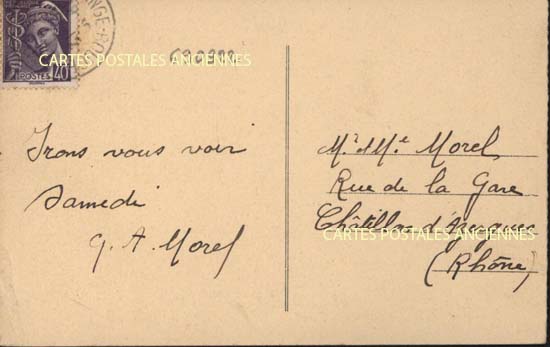 POSTES 40
CARTES POSTALES ANCIENNES
Irons vous voir
Samedi
G. A. Morel
Mr et Me Morel
Rue de la Gare
Châtillon d'Azergues
CARTES POSTALES ANCIENNES
(Rhône)